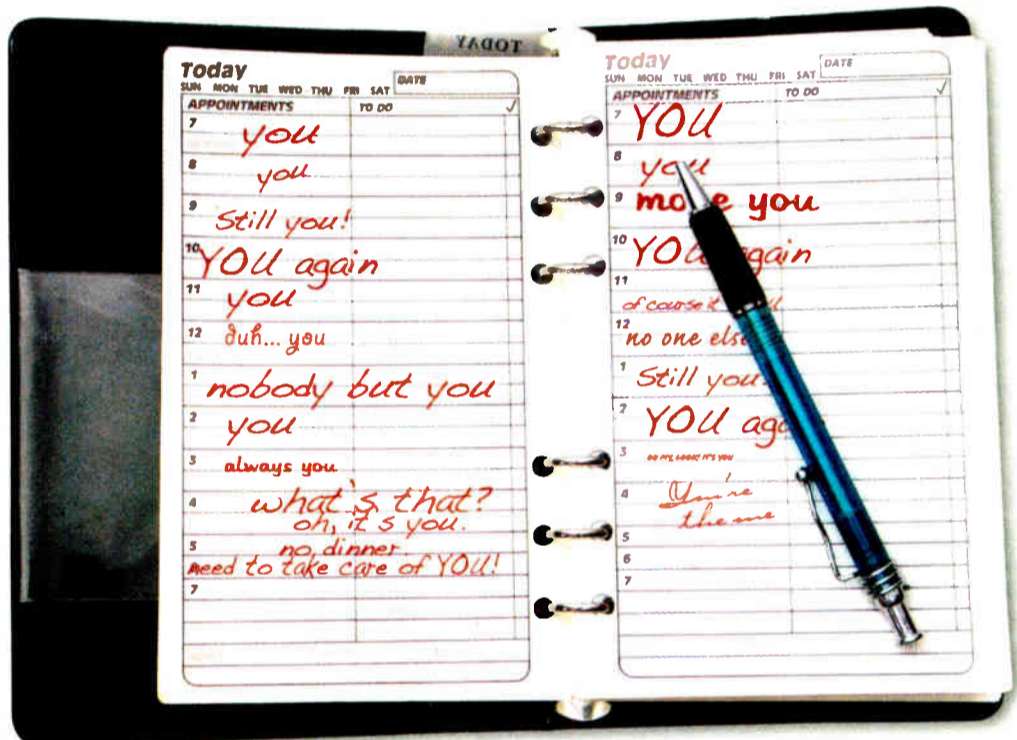 TODAY
Today
SUN MON TUE WED THU FRI SAT
DATE
APPOINTMENTS TO DO
7 you
8 you
9 Still you!
10 YOU again
11 you
12 duh... you
1 nobody but you
2 you
3 always you
4 what's that?
oh, it's you.
5 no, dinner.
need to take care of YOU!
7
Today
SUN MON TUE WED THU FRI SAT
DATE
APPOINTMENTS TO DO
7 YOU
8 you
9 more you
10 YOU again
11 of course it
12 no one else
1 Still you.
2 YOU again
3 OH MY, LOOK! IT'S YOU
4 You're
the one
5
6
7